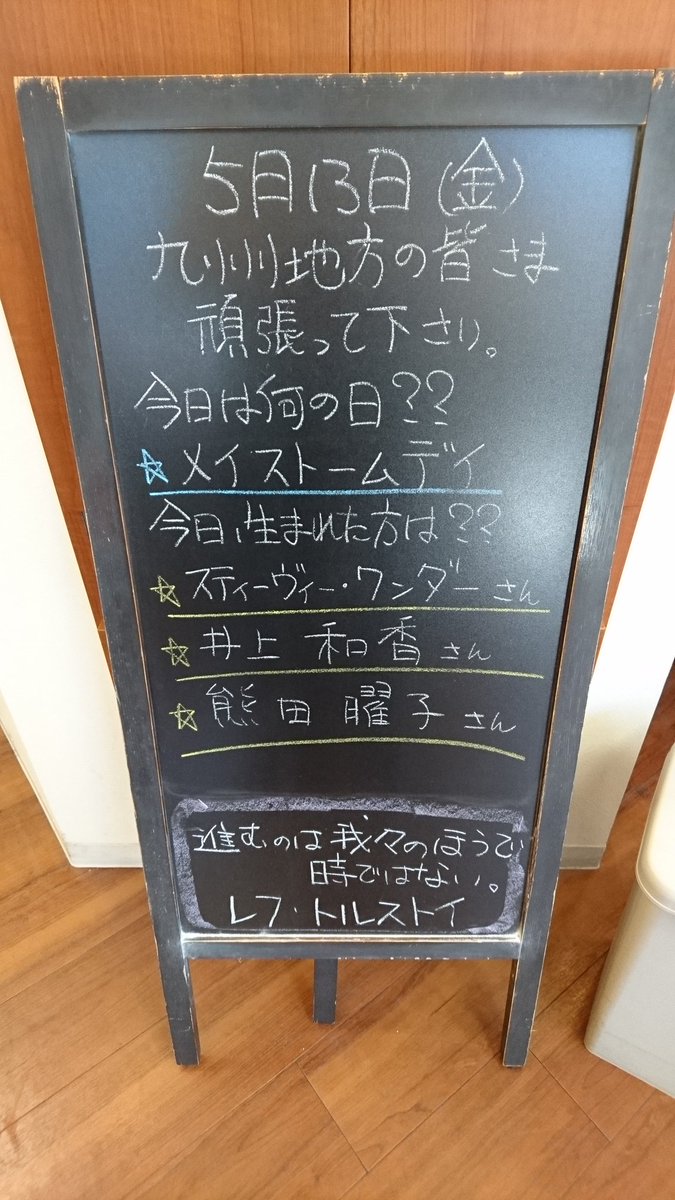 5月13日(金)
九州地方の皆さま
頑張って下さい。
今日は何の日??
☆メイストームデイ
今日、生まれた方は??
☆スティーヴィー・ワンダーさん
☆井上 和香さん
☆熊田 曜子さん
進むのは我々のほうで
時ではない。
レフ・トルストイ